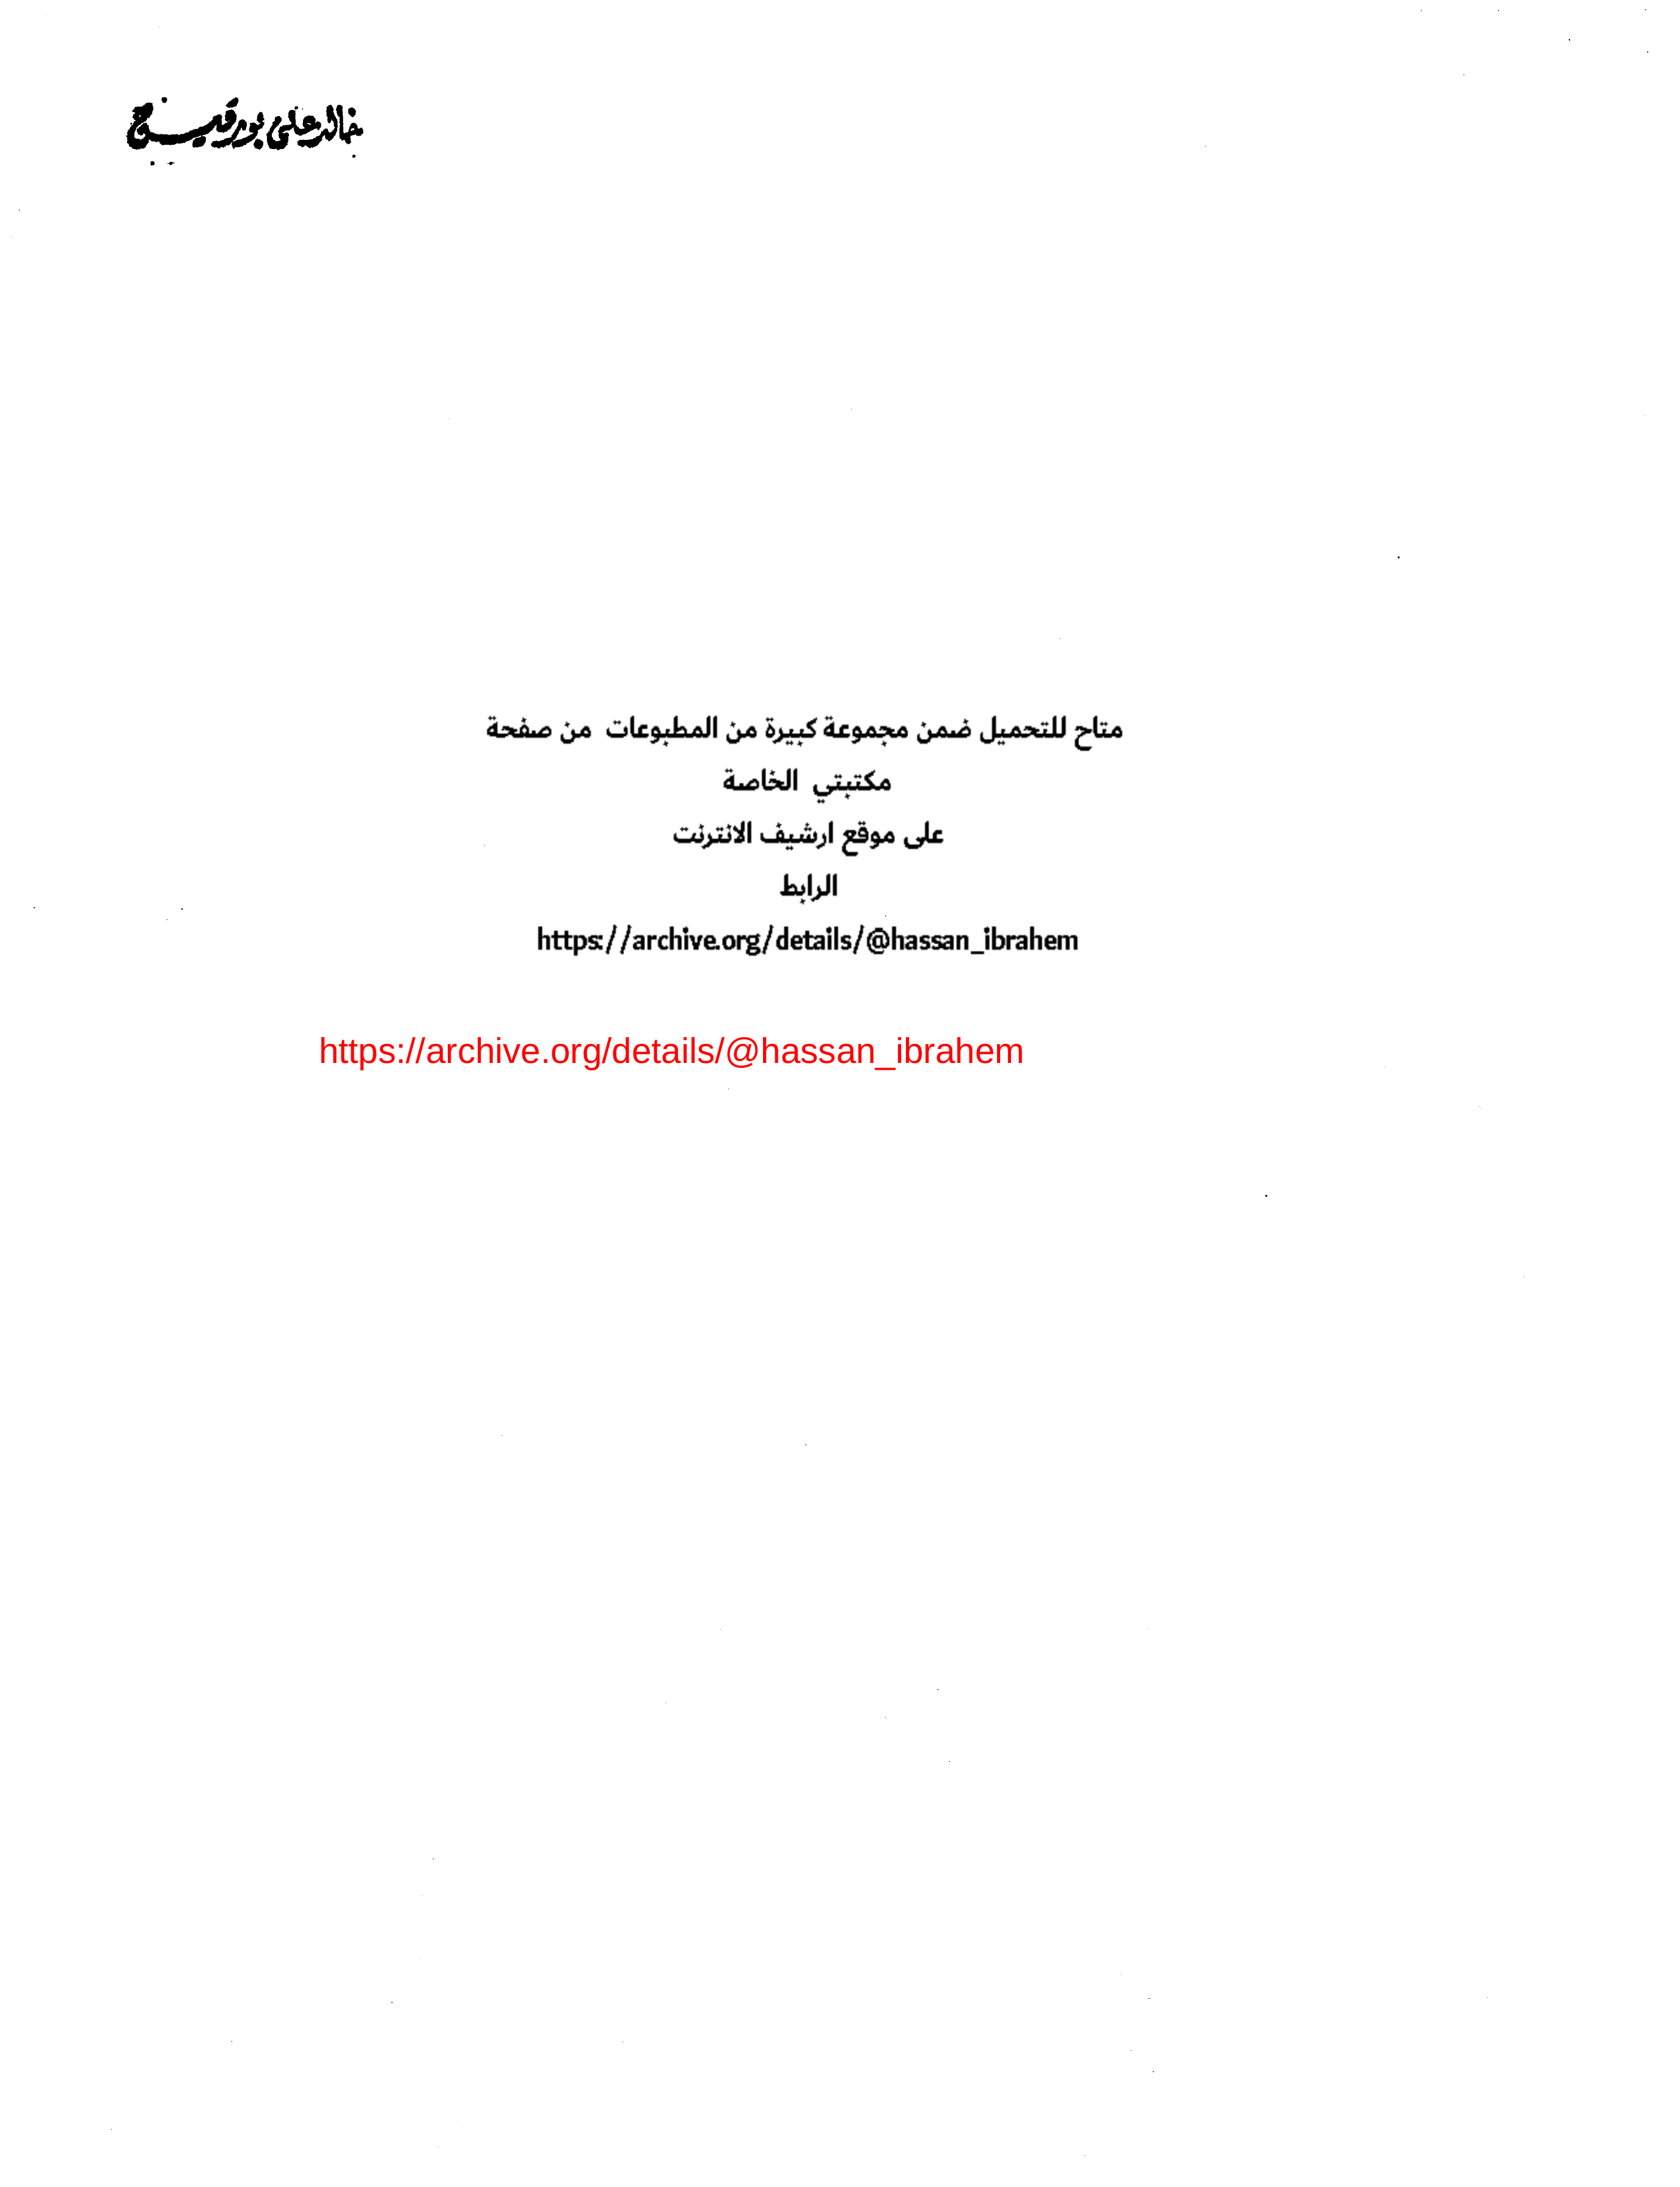 خالد علي بورقيبـج
متاح للتحميل ضمن مجموعة كبيرة من المطبوعات من صفحة
مكتبتي الخاصة
على موقع ارشيف الانترنت
الرابط
https://archive.org/details/@hassan_ibrahem
https://archive.org/details/@hassan_ibrahem